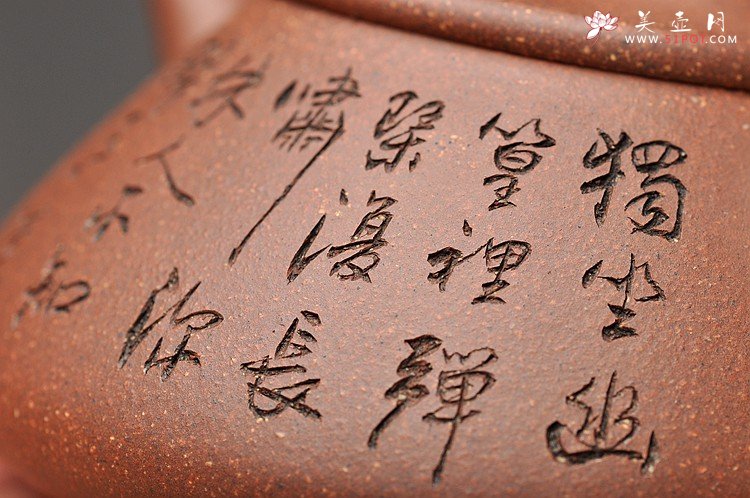 獨坐幽
篁裡彈
琴復長
嘯深
林人不知
美壶网
WWW.51POT.COM